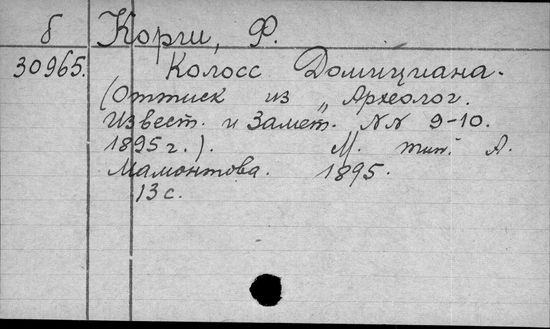 б Корги, Ф.
30965. Колосс Домициана.
(Оттиск из „Археолог.
Извест. и Замет. NN 9-10.
1895 г.). М. тип. А.
Мамонтова. 1895.
13 с.